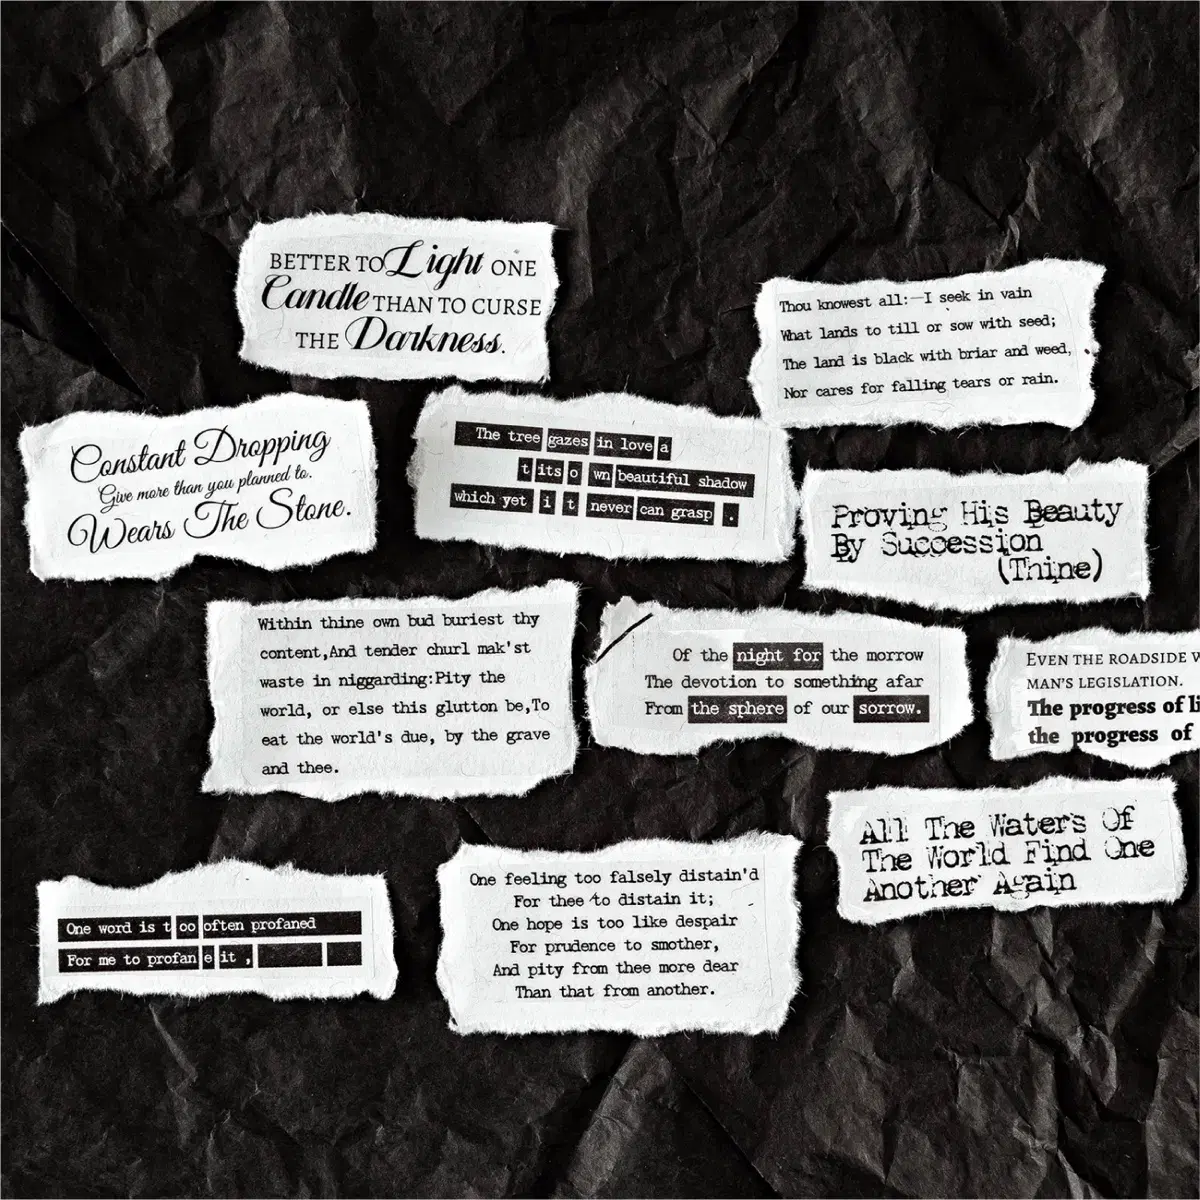 BETTER TO Light ONE
Candle THAN TO CURSE
THE Darkness.
Thou knowest all:—I seek in vain
What lands to till or sow with seed;
The land is black with briar and weed,
Nor cares for falling tears or rain.
Constant Dropping
Give more than you planned to.
Wears The Stone.
The tree gazes in love a
t its o wn beautiful shadow
which yet i t never can grasp .
Proving His Beauty
By Succession
(Thine)
Within thine own bud buriest thy
content,And tender churl mak'st
waste in niggarding:Pity the
world, or else this glutton be,To
eat the world's due, by the grave
and thee.
Of the night for the morrow
The devotion to something afar
From the sphere of our sorrow.
EVEN THE ROADSIDE
MAN'S LEGISLATION.
The progress of
the progress of
All The Waters Of
The World Find One
Another Again
One word is t oo often profaned
For me to profan e it ,
One feeling too falsely distain'd
For thee to distain it;
One hope is too like despair
For prudence to smother,
And pity from thee more dear
Than that from another.